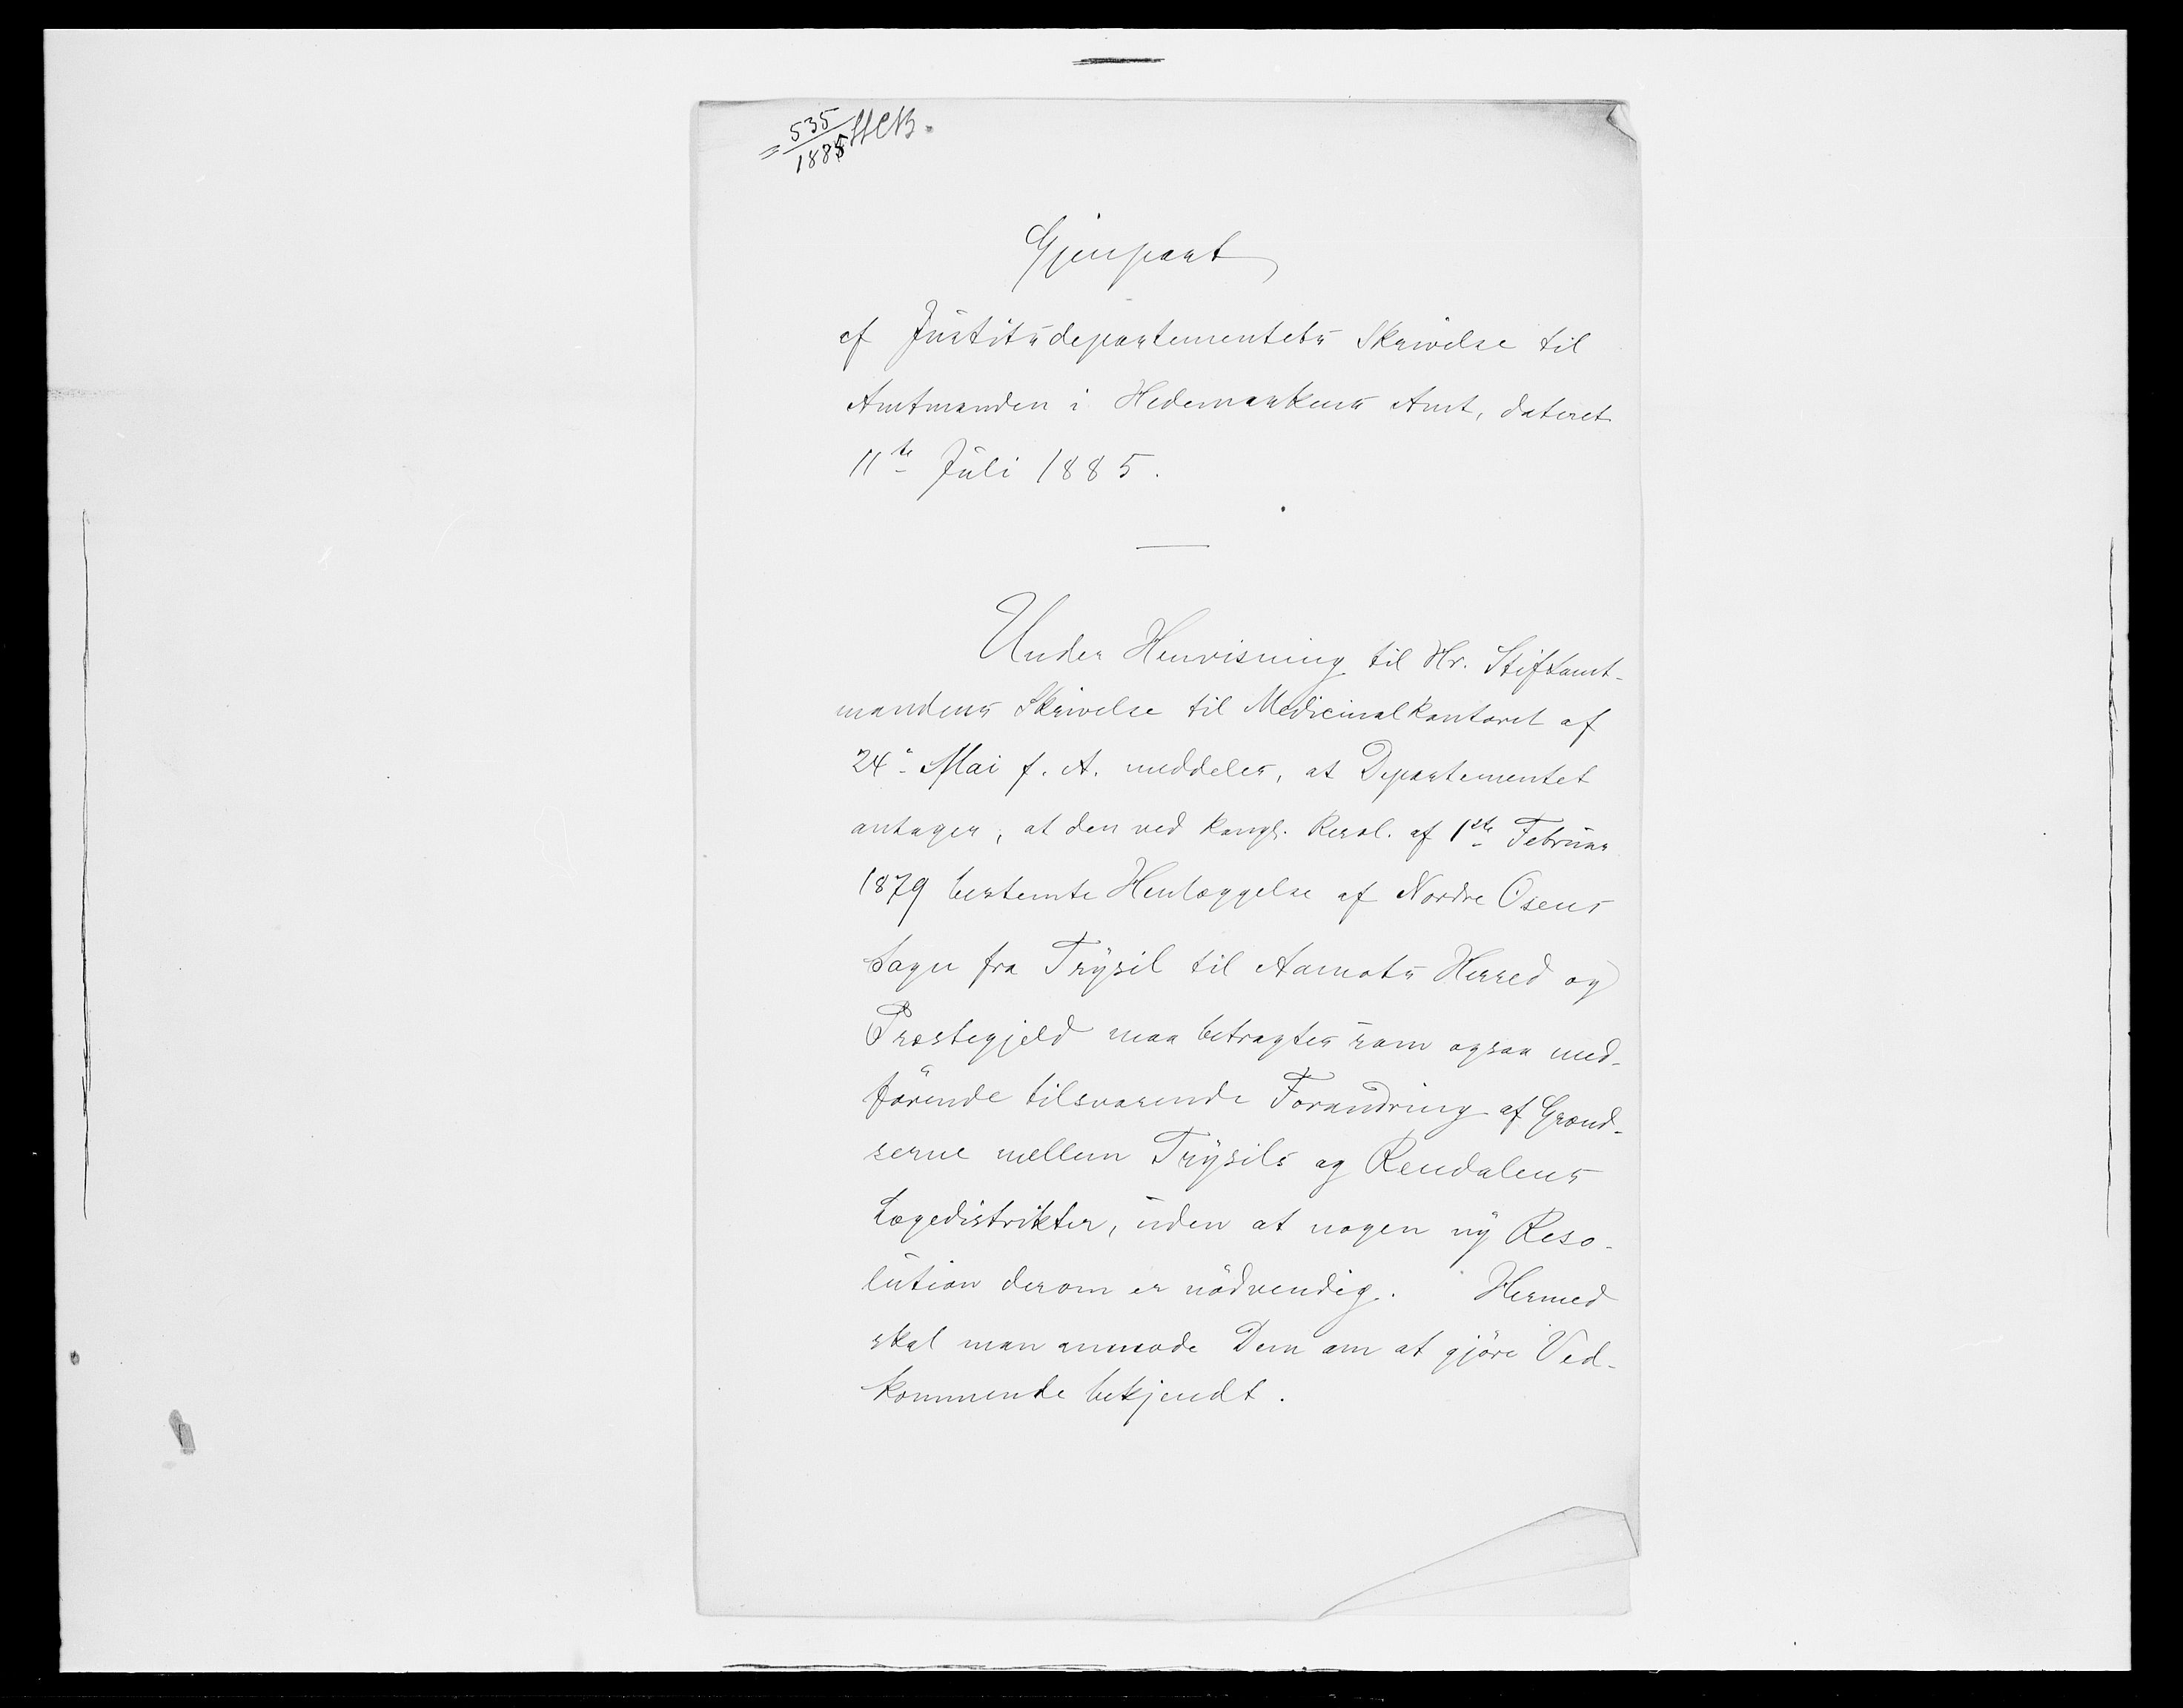 = 535/1885 HCB.
Gjenpart
af Justitsdepartementets Skrivelse til
Amtmanden i Hedemarkens Amt, dateret
11te Juli 1885.
Under Henvisning til Hr. Stiftamt-
mandens Skrivelse til Medicinalkontoret af
24de Mai f. A. meddeles, at Departementet
antager, at den ved kongl. Resol. af 1ste Februar
1879 bestemte Henlæggelse af Nordre Osens
Sogn fra Trysil til Aamots Herred og
Præstegjeld maa betragtes som ogsaa med-
förende tilsvarende Forandring af Grænd-
serne mellem Trysils og Rendalens
Lægedistrikter, uden at nogen ny Reso-
lution derom er nödvendig. Hermed
skal man anmode Dem om at gjöre Ved-
kommende bekjendt.